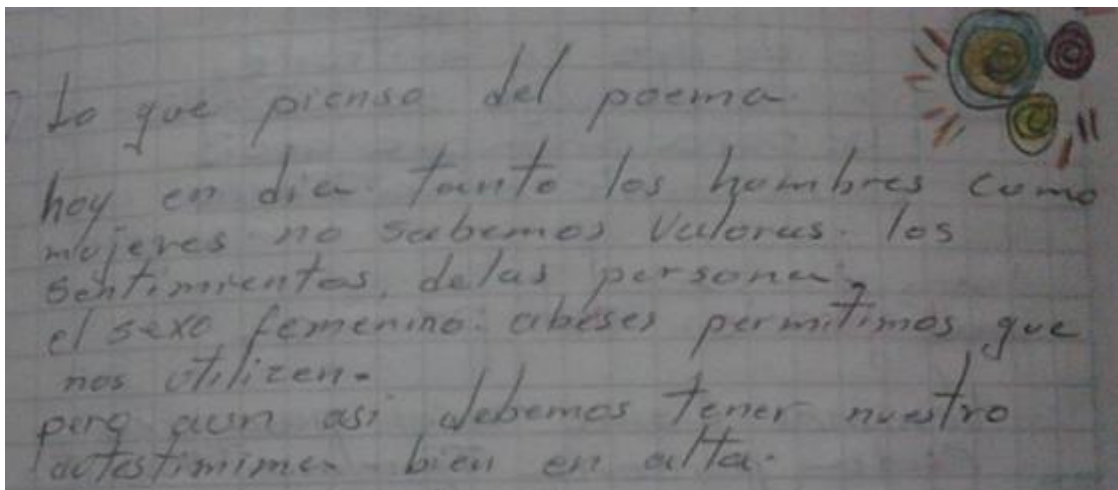 Lo que pienso del poema
hoy en dia tanto los hombres como
mujeres no sabemos valoras los
sentimientos, delas persona,
el sexo femenino. abeses permitimos que
nos utilizen.
pero aun asi debemos tener nuestro
bien en alta.